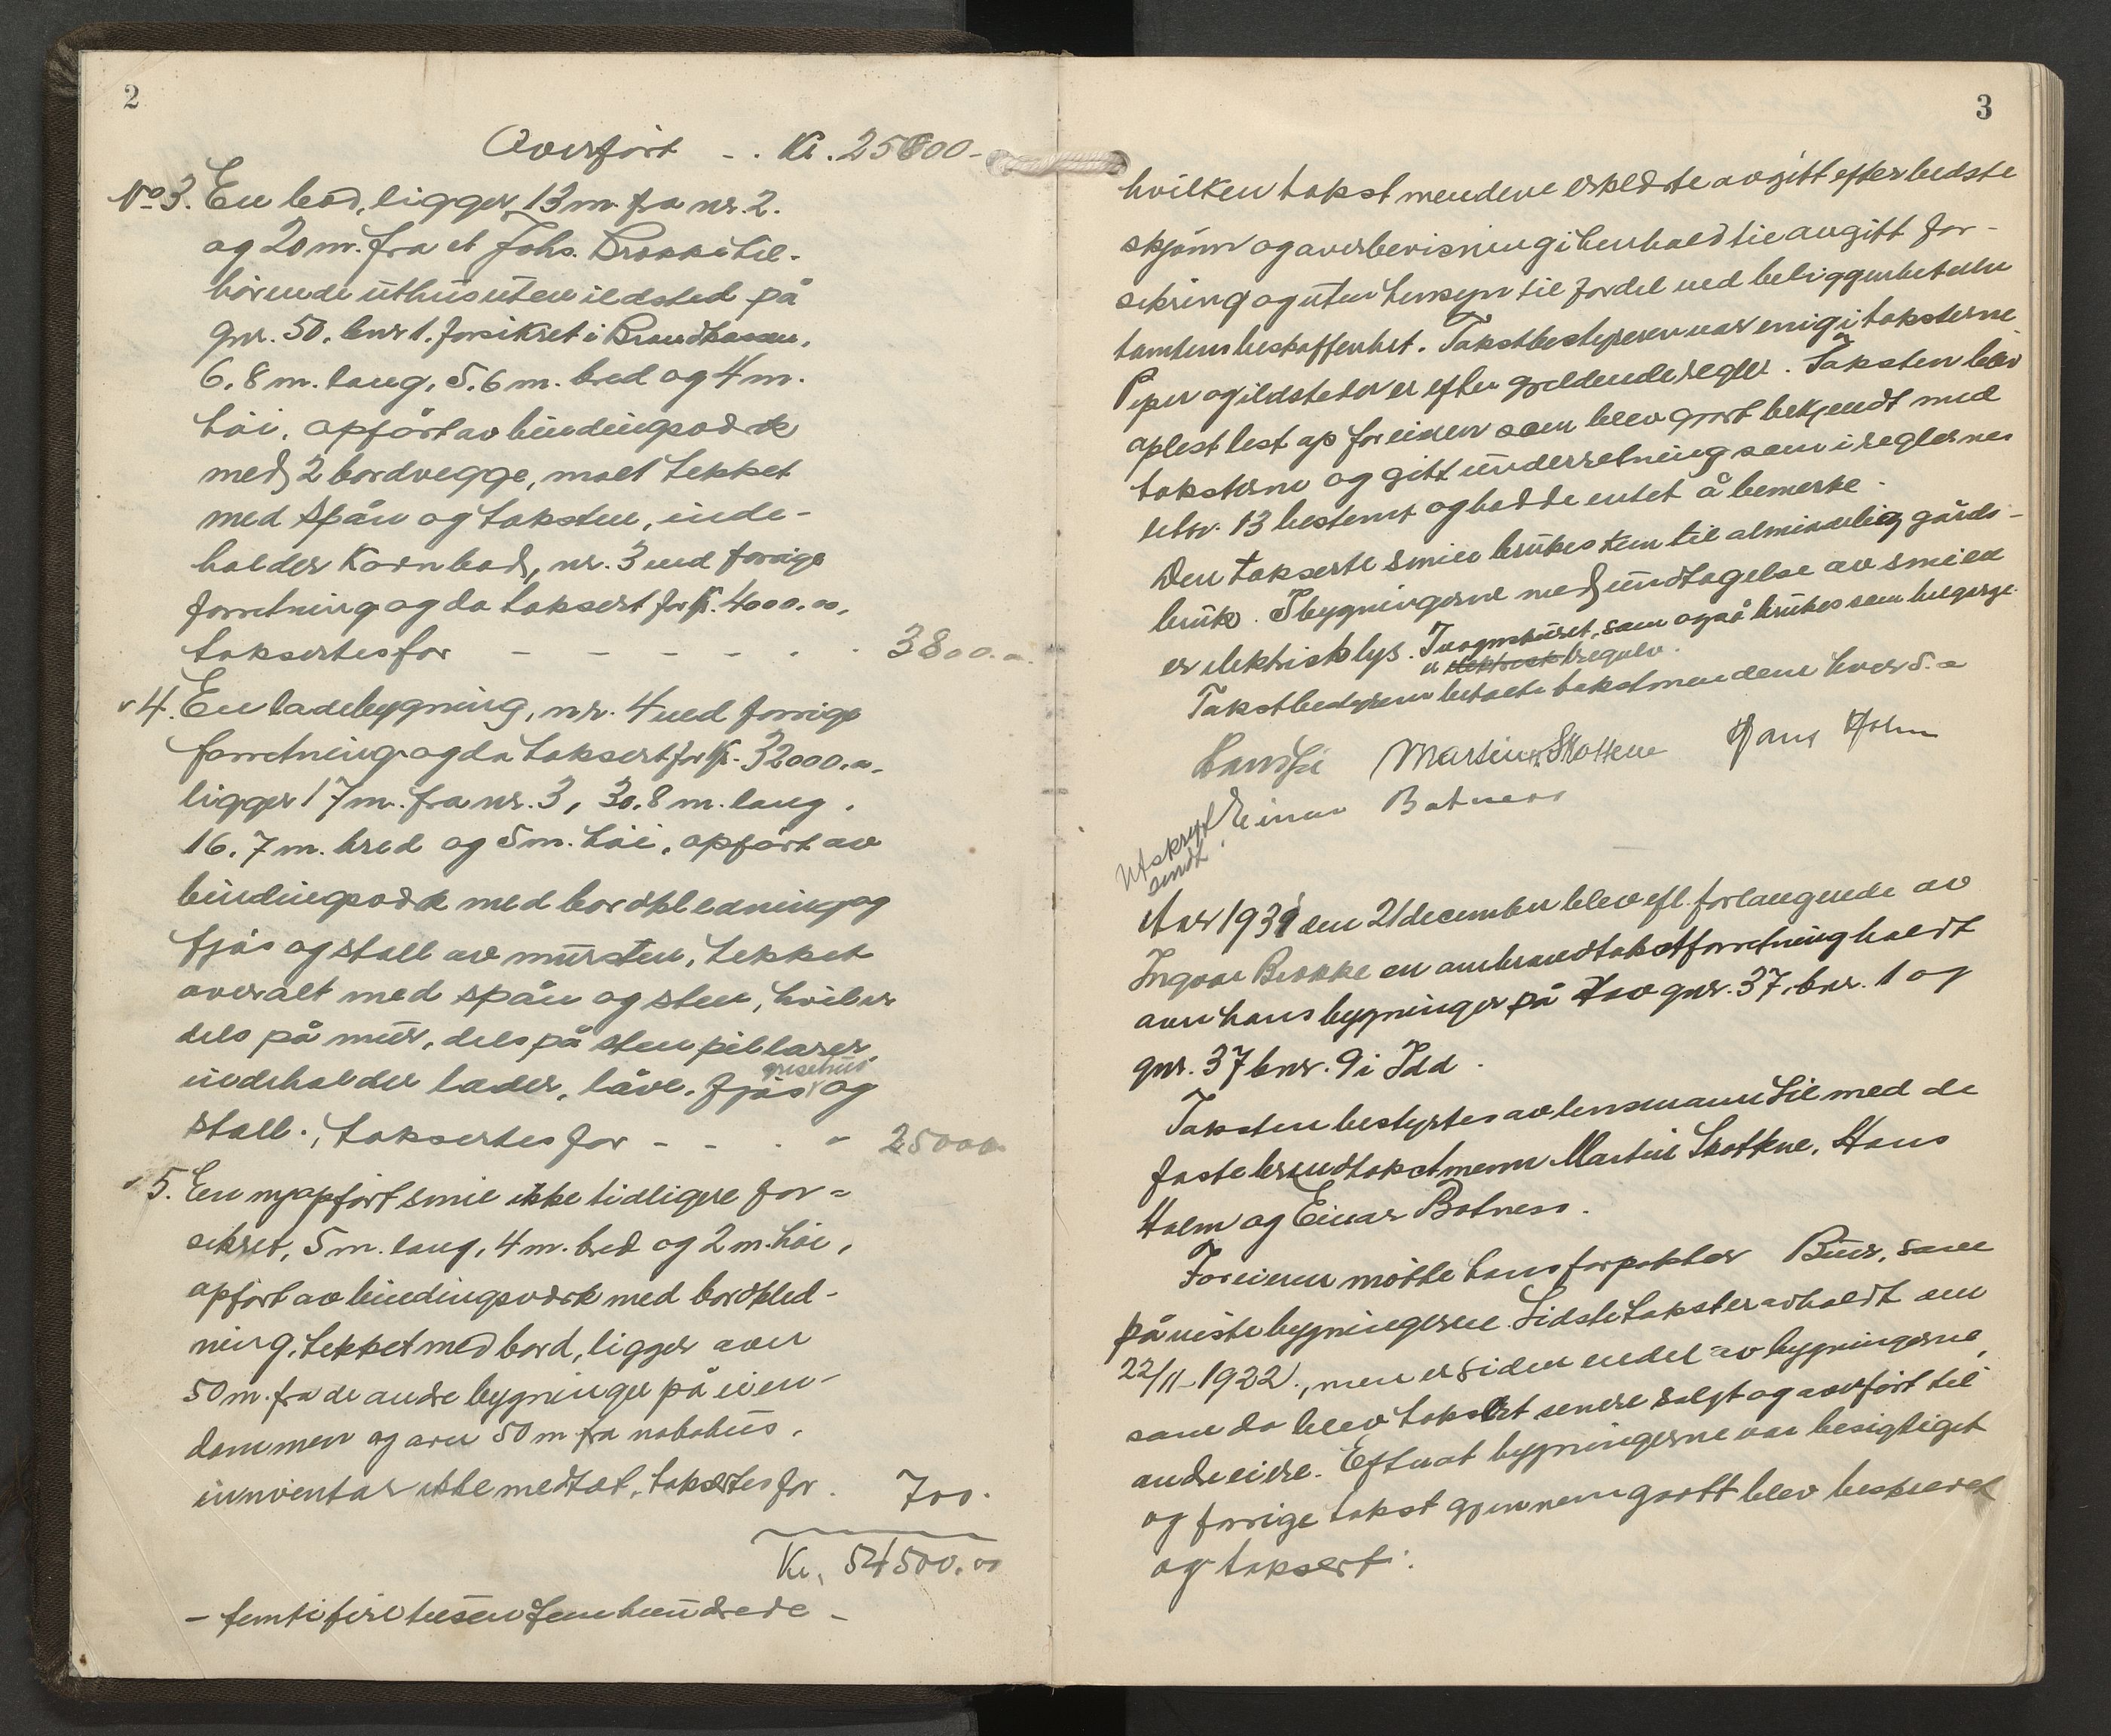 2
Overført - . Kr. 25000.-
No 3. En bod, ligger 13 m. fra nr. 2.
og 20 m. fra et Johs. Brokke til-
hörende uthus uten ildsted på
gnr. 50, bnr 1. forsikret i Brandkassen,
6,8 m. lang, 5,6 m. bred og 4 m.
höi, opfört av bindingsverk
med 2 bordvegge, malt tekket
med spån og taksten, inde-
holder kornbod, nr. 3 ved forrige
forretning og da taksert for kr. 4000.00,
taksertes for - - - - . . 3800.00
" 4. En ladebygning, nr. 4 ved forrige
forretning og da taksert for kr. 32000.00.
ligger 17 m. fra nr. 3, 30,8 m. lang,
16,7 m. bred og 5 m. höi, opfört av
bindingsverk med bordkledning og
fjös og stall av mursten, tekket
overalt med spån og sten, hviler
dels på mur, dels på sten pillarer,
indeholder lader, låve, fjös grisehus og
stall., taksertes for - - . " 25000
" 5. En ny opfört smie ikke tidligere for-
sikret, 5 m. lang, 4 m. bred og 2 m. höi,
opfört av bindingsverk med bordkled-
ning, tekket med bord, ligger over
50 m. fra de andre bygninger på eien-
dommen og over 50 m fra nabohus,
inventar ikke medtat, taksertes for . 700.
Kr. 54500.00
- femtifiretusenfemhundrede -
3
hvilken takst mendene erklerte avgitt efter bedste
skjönn og overbevisning i henhold til avgitt for-
sikring og uten hensyn til fordel ved beliggenhet eller
tomtens beskaffenhet. Takstbestyreren var enig i taksterne.
Piper og ildsteder er efter gjeldende regler. Taksten blev
oplest lest op for eieren som blev gjort bekjendt med
taksterne og gitt underretning som i reglernes
litr. 13 bestemt og hadde intet å bemerke.
Den takserte smie brukes kun til almindelig gårds-
bruk. I bygningerne med undtagelse av smien
er elektrisk lys. I vognskuret, som også brukes som bilgarage
er elektrisk tregulv.
Takstbestyreren betalte takstmendene hver 5.00
Martin Skottene Hans Holm
Einar Botness
Utskrift
sendt.
Aar 1931 den 21 december blev efl. forlangende av
Ingvar Brokke en ambrandtakstforretning holdt
over hans bygninger på gnr. 37, bnr. 1 og
gnr. 37 bnr. 9 i Idd.
Taksten bestyrtes av lensmann Lie med de
faste brandtakstmenn Martin Skottene, Hans
Holm og Einar Botness.
For eieren mötte hans forpakter Buer, som
påviste bygningerne. Sidste takst er avholdt den
22/11-1922., men er siden endel av bygningerne,
som da blev taksert senere solgt og overfört til
andre eiere. Efter at bygningerne var besigtiget
og forrige takst gjennemgått blev beskrevet
og taksert: